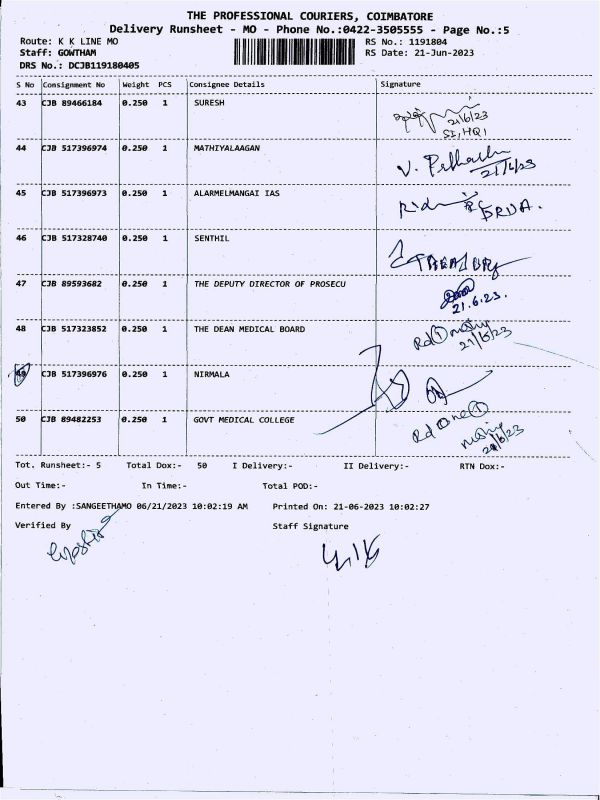 THE PROFESSIONAL COURIERS, COIMBATORE
Delivery Runsheet - MO - Phone No.:0422-3505555 - Page No.:5
Route: K K LINE MO RS No.: 1191804
Staff: GOWTHAM RS Date: 21-Jun-2023
DRS No.: DCJB119180405
S No Consignment No Weight PCS Consignee Details Signature
43 CJB 89466184 0.250 1 SURESH
21/6/23
SI, HQ1
44 CJB 517396974 0.250 1 MATHIYALAAGAN
V.
21/6/23
45 CJB 517396973 0.250 1 ALARMELMANGAI IAS
DRDA.
46 CJB 517328740 0.250 1 SENTHIL
47 CJB 89593682 0.250 1 THE DEPUTY DIRECTOR OF PROSECU
21.6.23.
48 CJB 517323852 0.250 1 THE DEAN MEDICAL BOARD
Rd 1
21/6/23
49 CJB 517396976 0.250 1 NIRMALA
50 CJB 89482253 0.250 1 GOVT MEDICAL COLLEGE
Rd One 1
21/6/23
Tot. Runsheet:- 5 Total Dox:- 50 I Delivery:- II Delivery:- RTN Dox:-
Out Time:- In Time:- Total POD:-
Entered By :SANGEETHAMO 06/21/2023 10:02:19 AM Printed On: 21-06-2023 10:02:27
Verified By Staff Signature